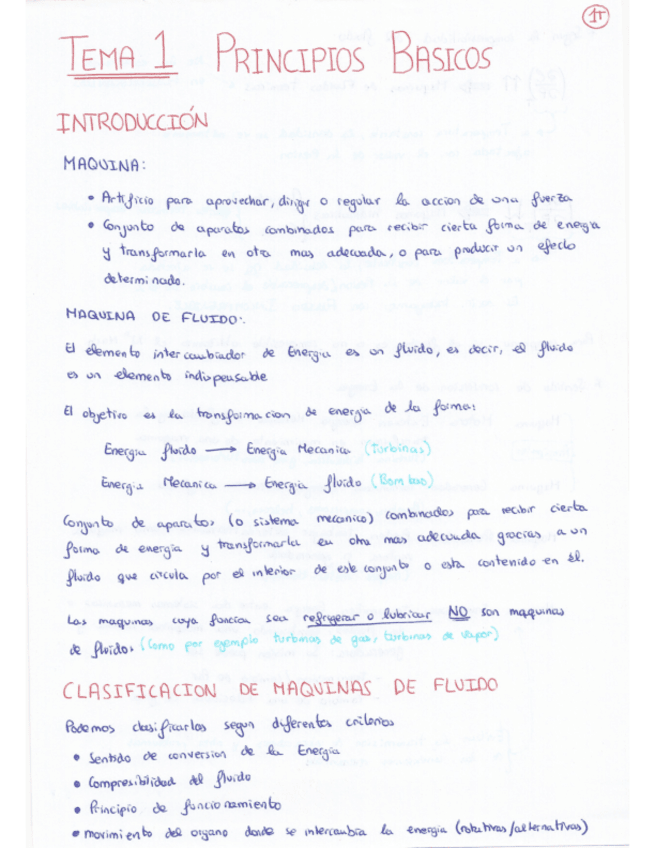 1T
TEMA 1 PRINCIPIOS BASICOS
INTRODUCCIÓN
MAQUINA:
• Artificio para aprovechar, dirigir o regular la accion de una fuerza
• Conjunto de aparatos combinados para recibir cierta forma de energia
y transformarla en otra mas adecuada, o para producir un efecto
determinado.
MAQUINA DE FLUIDO:
El elemento intercambiador de Energia es un fluido, es decir, el fluido
es un elemento indispensable
El objetivo es la transformacion de energia de la forma:
Energia fluido → Energia Mecanica (Turbinas)
Energia Mecanica → Energia fluido (Bombas)
Conjunto de aparatos (o sistema mecanico) combinados para recibir cierta
forma de energia y transformarla en otra mas adecuada gracias a un
fluido que circula por el interior de este conjunto o esta contenido en él.
Las maquinas cuya funcion sea refrigerar o lubricar NO son maquinas
de fluidos (Como por ejemplo turbinas de gas, turbinas de vapor)
CLASIFICACION DE MAQUINAS DE FLUIDO
Podemos clasificarlas segun diferentes criterios
• Sentido de conversion de la Energia
• Compresibilidad del fluido
• Principio de funcionamiento
• movimiento del organo donde se intercambia la energia (rotativas/alternativas)